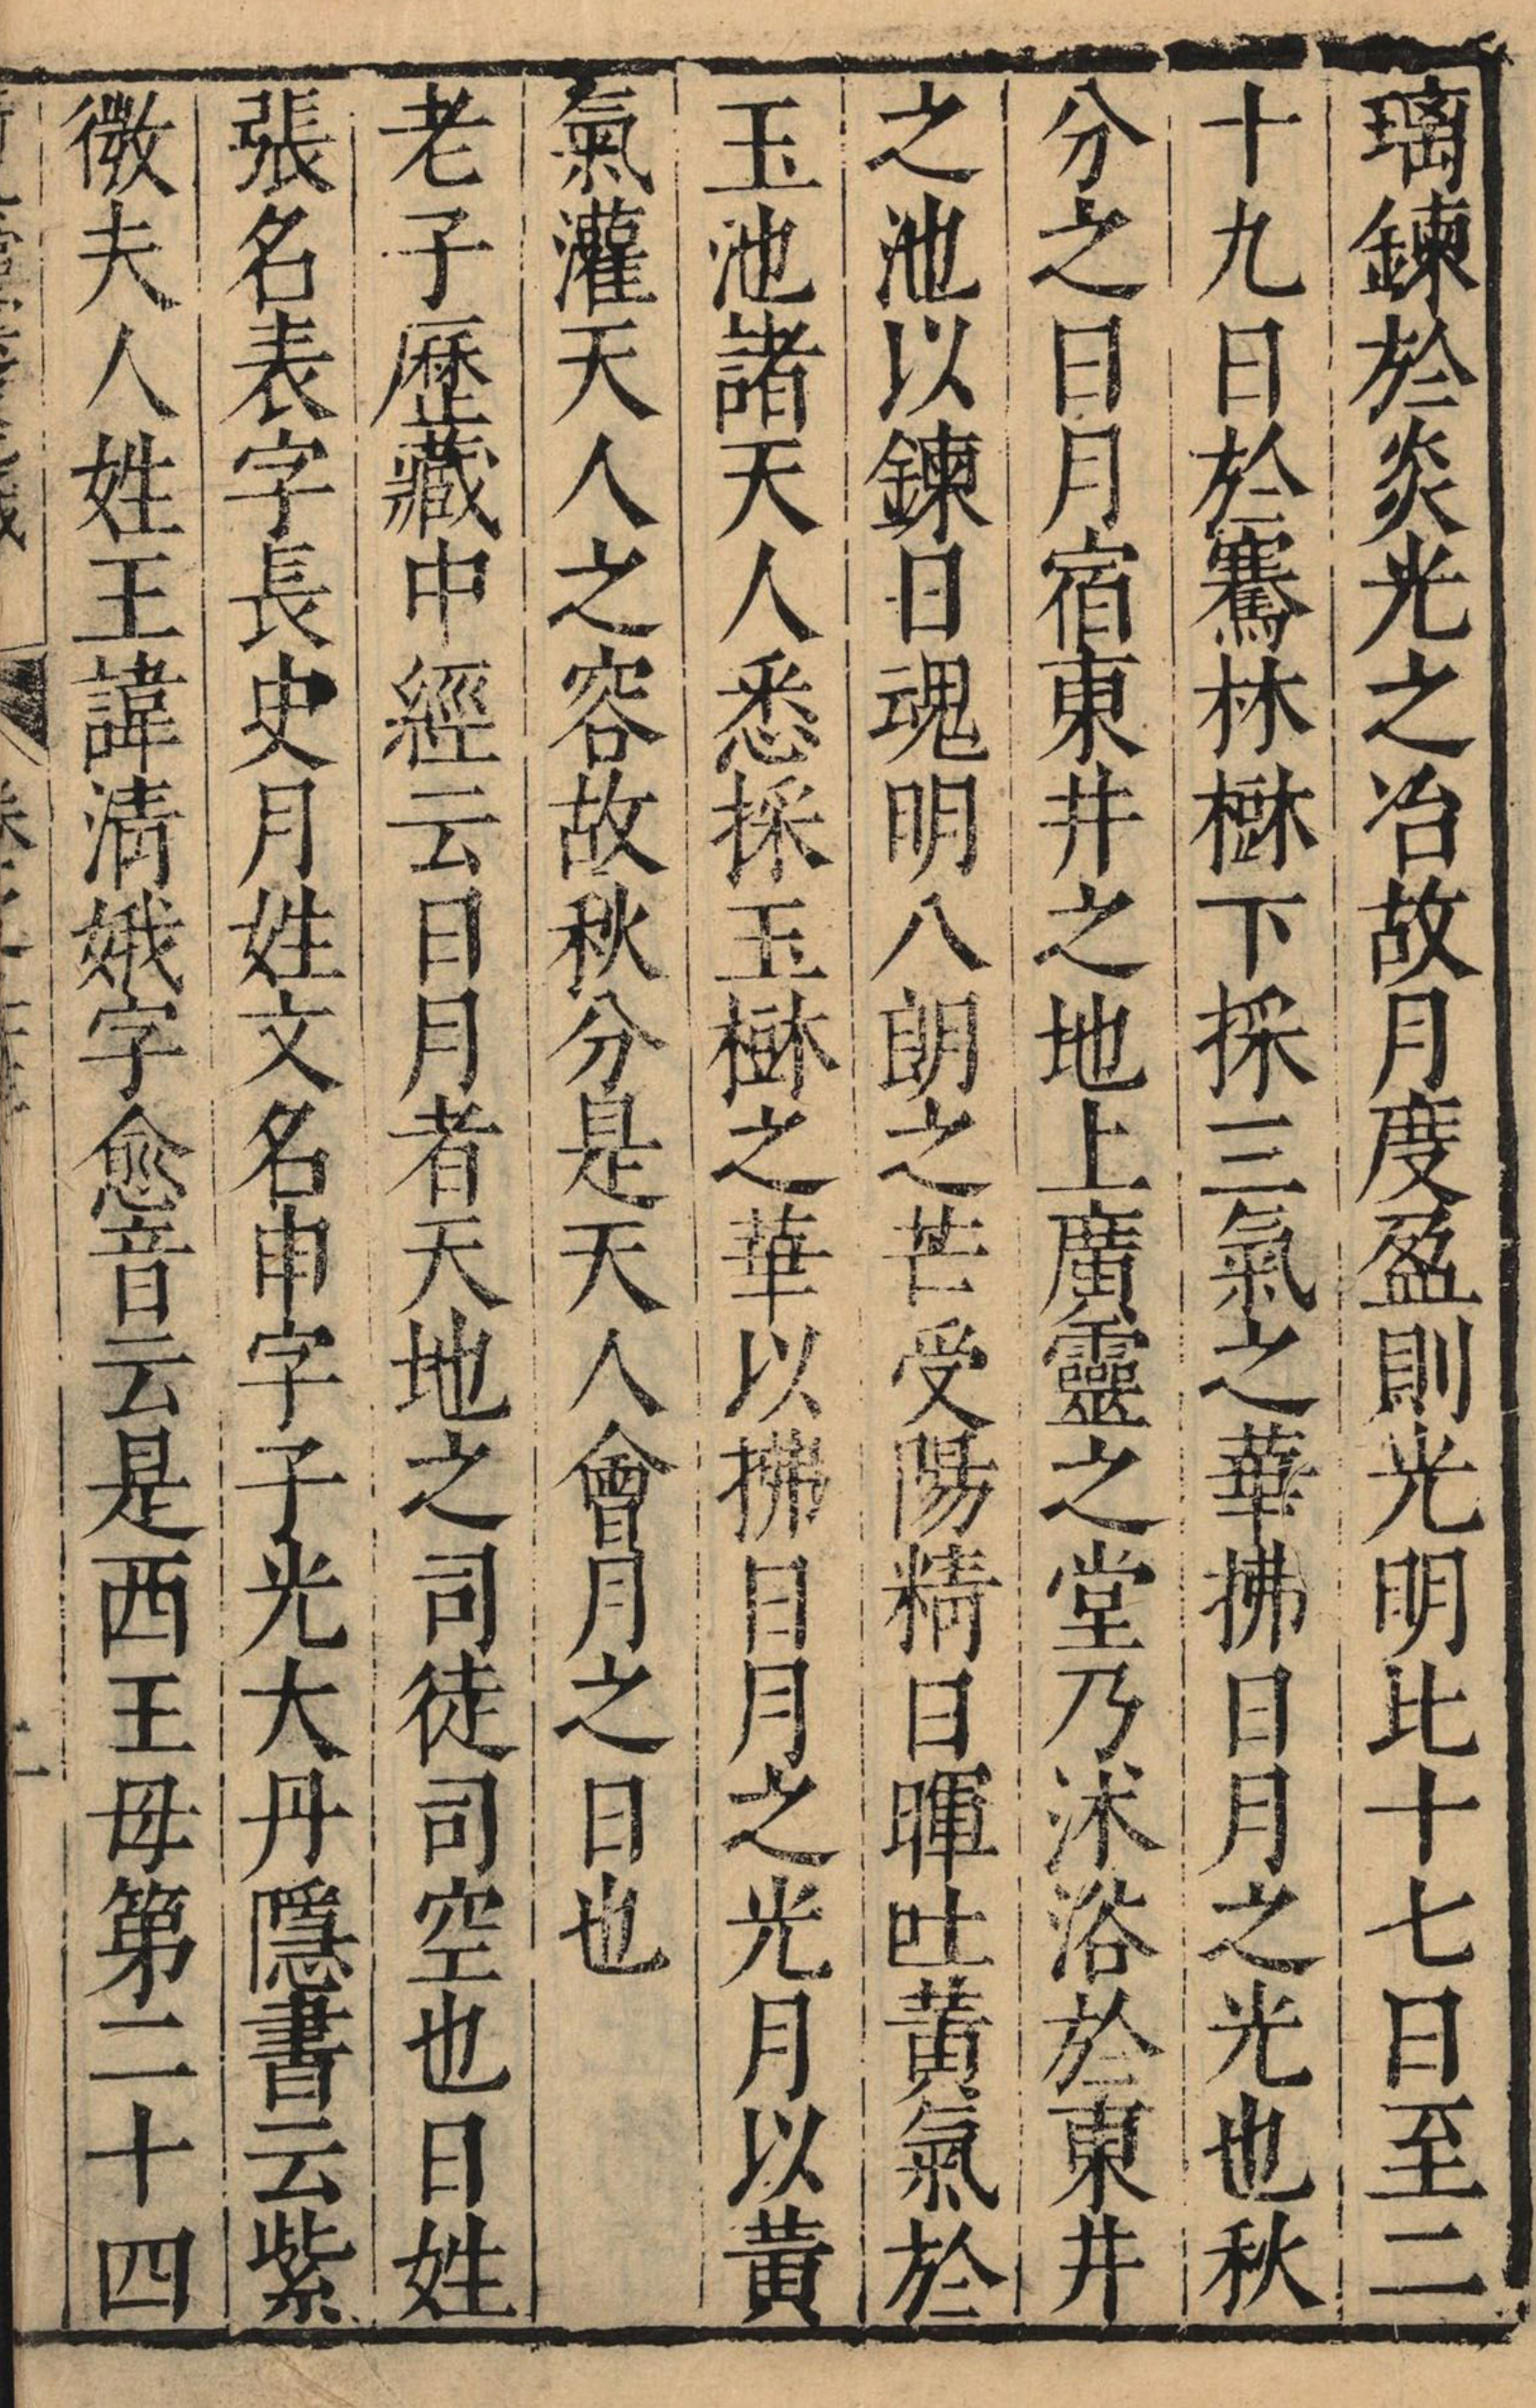 璃鍊於炎光之冶故月度盈則光明比十七日至二
十九日於騫林樹下採三氣之華拂日月之光也秋
分之日月宿東井之地上廣靈之堂乃沐浴於東井
之池以鍊日魂明八朗之芒受陽精日暉吐黃氣於
玉池諸天人悉採玉樹之華以拂日月之光月以黃
氣灌天人之容故秋分是天人會月之日也
老子歷藏中經云日月者天地之司徒司空也日姓
張名表字長史月姓文名申字子光大丹隱書云紫
微夫人姓王諱清娥字愈音云是西王母第二十四